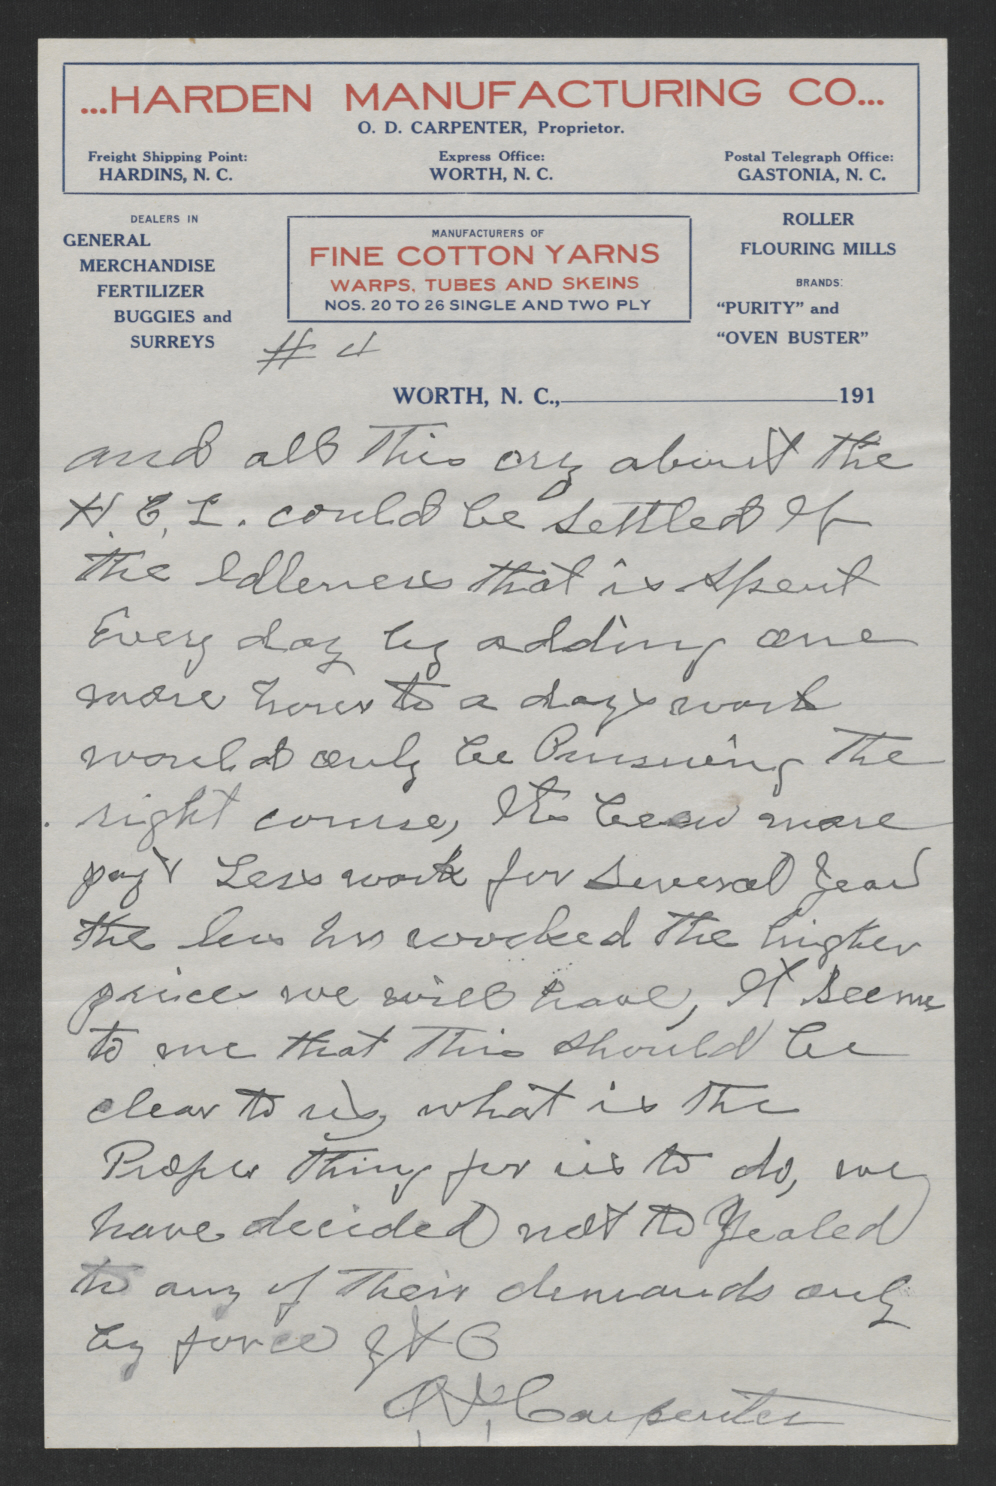 ...HARDEN MANUFACTURING CO...
O. D. CARPENTER, Proprietor.
Freight Shipping Point:
HARDINS, N. C.
Express Office:
WORTH, N. C.
Postal Telegraph Office:
GASTONIA, N. C.
DEALERS IN
GENERAL
MERCHANDISE
FERTILIZER
BUGGIES and
SURREYS
MANUFACTURERS OF
FINE COTTON YARNS
WARPS, TUBES AND SKEINS
NOS. 20 TO 26 SINGLE AND TWO PLY
ROLLER
FLOURING MILLS
BRANDS:
“PURITY” and
“OVEN BUSTER”
# 4
WORTH, N. C., 191
and all this cry about the
H. C. L. could be settled If
the Idleness that is spent
Every day by adding one
more hour to a days work
would only be Pursuing the
right course, Its been more
pay & Less work for several years
the less hrs worked the higher
prices we will have, It seems
to me that This should be
clear to us, what is the
Proper thing for us to do, we
have decided not to Yealed
to any of Their demands only
by force
O. D. Carpenter